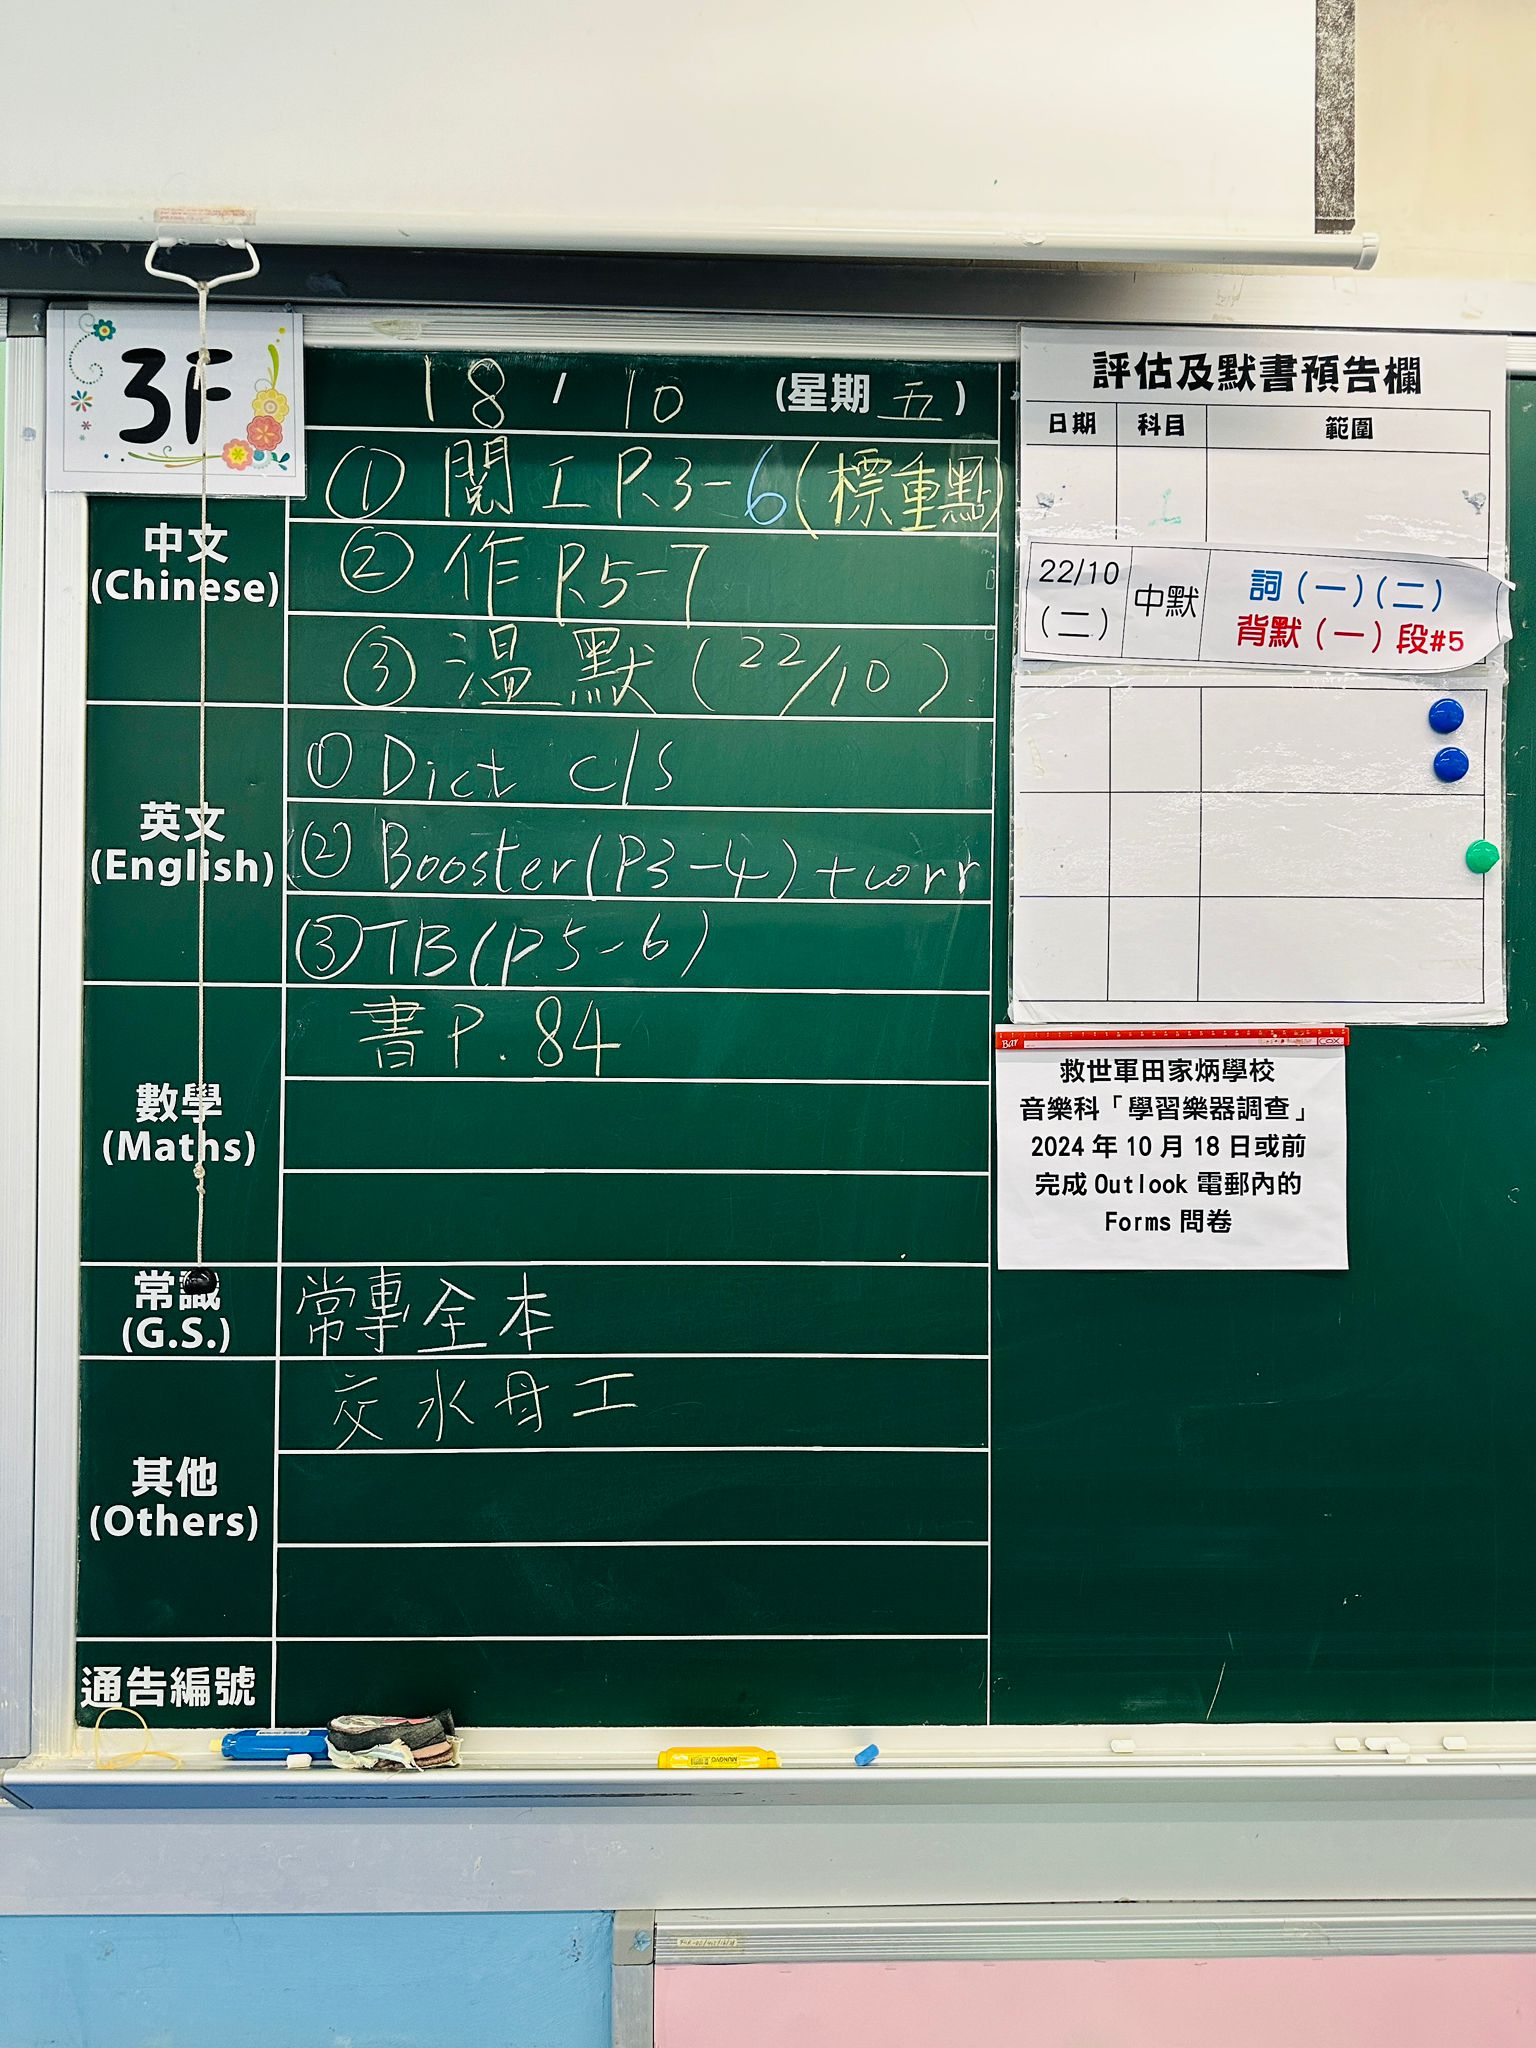 3F
18 / 10 (星期 五 )
中文
(Chinese)
① 閱工 P.3-6 (標重點)
② 作 P.5-7
③ 溫默 (22/10)
英文
(English)
① Dict c/s
② Booster (P3-4) + corr
③ TB (P.5-6)
數學
(Maths)
書 P.84
常識
(G.S.)
常專全本
其他
(Others)
交水母工
通告編號
評估及默書預告欄
日期 科目 範圍
22/10
(二)
中默
詞 (一) (二)
背默 (一) 段#5
Bar COX
救世軍田家炳學校
音樂科「學習樂器調查」
2024 年 10 月 18 日或前
完成 Outlook 電郵內的
Forms 問卷
MUNGYO